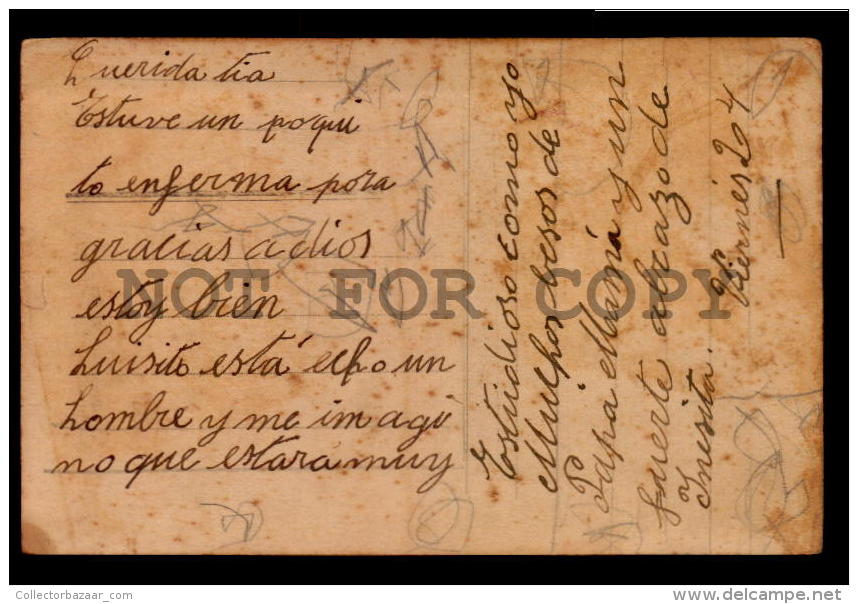 Querida tia
Estuve un poqui
to enferma pora
gracias a dios
estoy bien
Luisito está echo un
hombre y me imagi
no que estara muy
Estudioso como yo
Muchos besos de
Papa e Mamá y un
fuerte abrazo de
Inesita. Viernes 20 4
NOT FOR COPY
Collectorbazaar_com
delcampe.net